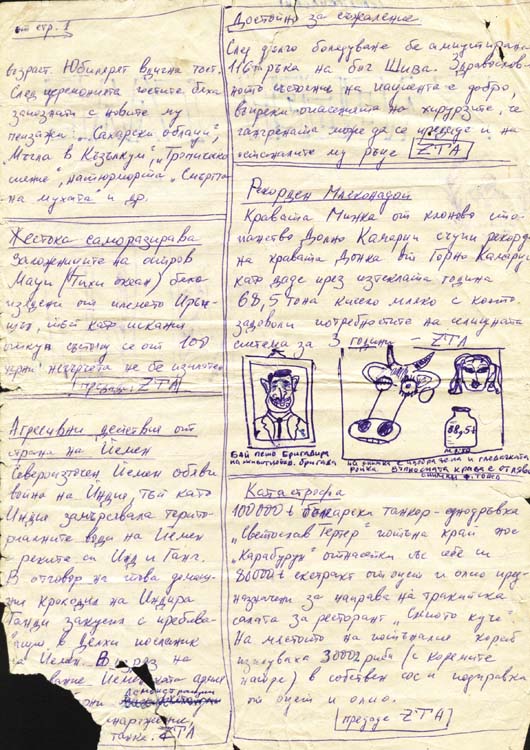 от стр. 1
възраст. Юбилярят вдигна тост.
След церемонията гостите бяха
запознати с новите му
пейзажи "Сахарски облаци",
"Мъгла в Къзълкум", "Тропическо
", натюрморта "Смъртта
на мухата" и др.
Жестока саморазправа
Заложниците на остров
Мауи (Тихи океан) бяха
изядени от племето
, тъй като искани
откуп състоящ се от 100
черни не бе изплатен
предаде ZTA
Агресивни действия от
страна на Йемен
Североизточен Йемен обяви
война на Индия, тъй като
Индия замърсявала терито-
риалните води на Йемен
с реките си Инд и Ганг.
В отговор на това домаш-
ния крокодил на Индира
Ганди закуси с пребива-
ващия в Делхи посланик
на Йемен. В на
Йеменската армия
демонстрации
снаряжение,
танка. ZTA
Достойно за съжаление
След дълго боледуване бе ампутирана
116та ръка на бог Шива. Здравослов-
ното състояние на пациента е добро,
въпреки опасенията на хирурзите, че
гангрената може да се предаде и на
останалите му ръце ZTA
Рекорден Млеконадой
Кравата Минка от клоново сто-
панство Долно Камарци счупи рекорда
на кравата Донка от Горно Камарци
като даде през изтеклата година
68,5 тона кисело мляко с което
задоволи потребностите на
система за 3 години - ZTA
68,5t
МЛЯКО
Бай Пено Бригадира
на животновъд. бригада
на снимката е изобразена и гледачката
Ронка. Въпросната крава е отляво
снимки ф. Тоша
Катастрофа
100000 t български танкер-еднодръвка
"Светослав Тертер" потъна край нос
"Карабурун" отнасяйки със себе си
80000 t екстракт от оцет и олио пред-
назначени за направа на тракийска
салата за ресторант "Синьото куче"
На мястото на потъналия кораб
изплуваха 3000 t риба (с коремите
нагоре) в собствен сос и подправка
от оцет и олио.
предаде ZTA